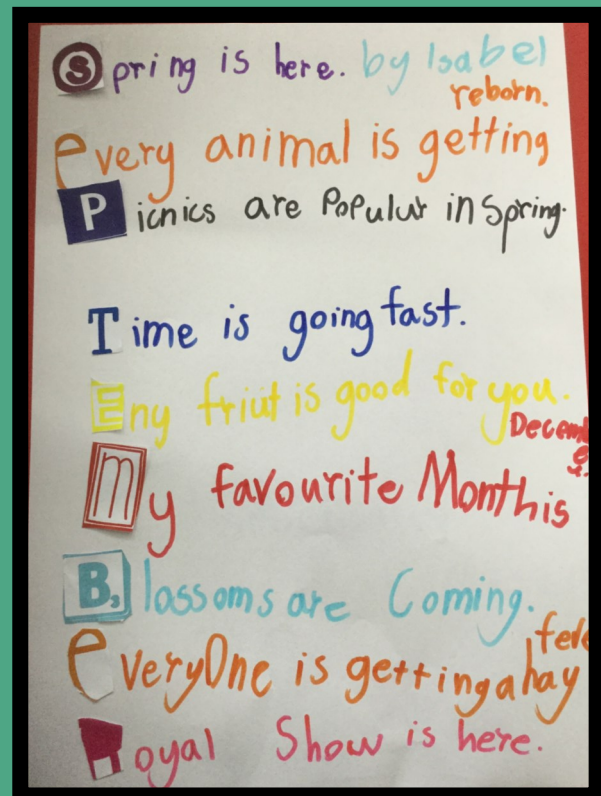 Spring is here. by Isabel
every animal is getting reborn.
Picnics are Popular in Spring.
Time is going fast.
Eny friut is good for you.
My favourite Month is
Blossoms are Coming.
everyOne is getting a hay
Royal Show is here.